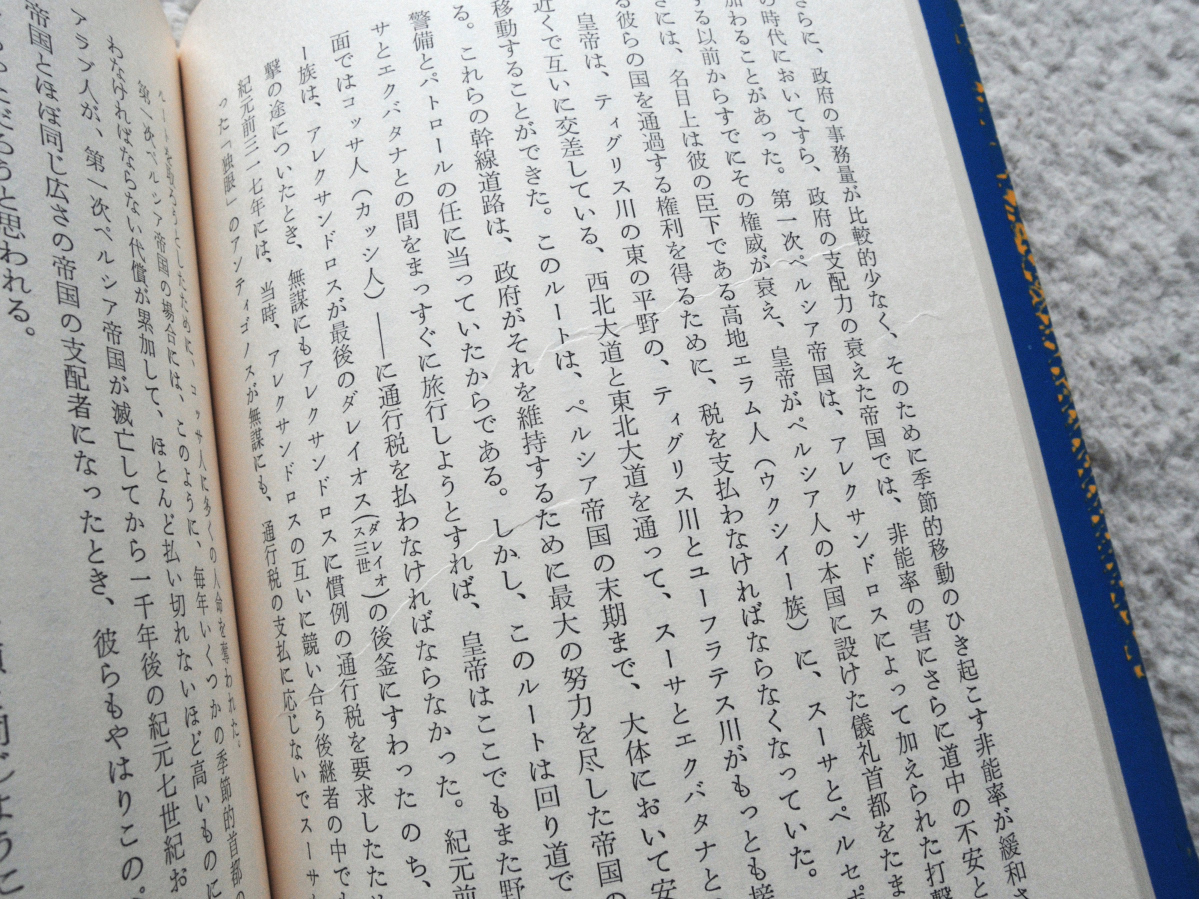 さらに、政府の事務量が比較的少なく、そのために季節的移動のひき起こす非能率が緩和さ
の時代においてすら、政府の支配力の衰えた帝国では、非能率の害にさらに道中の不安と
加わることがあった。第一次ペルシア帝国は、アレクサンドロスによって加えられた打撃
する以前からすでにその権威が衰え、皇帝がペルシア人の本国に設けた儀礼首都をたま
さには、名目上は彼の臣下である高地エラム人(ウクシイー族)に、スーサとペルセポ
る彼らの国を通過する権利を得るために、税を支払わなければならなくなっていた。
皇帝は、ティグリス川の東の平野の、ティグリス川とユーフラテス川がもっとも接
近くで互いに交差している、西北大道と東北大道を通って、スーサとエクバタナと
移動することができた。このルートは、ペルシア帝国の末期まで、大体において安
る。これらの幹線道路は、政府がそれを維持するために最大の努力を尽した帝国の
警備とパトロールの任に当っていたからである。しかし、このルートは回り道で
サとエクバタナとの間をまっすぐに旅行しようとすれば、皇帝はここでもまた野
面ではコッサ人(カッシ人)――に通行税を払わなければならなかった。紀元前
撃の途についたとき、アレクサンドロスが最後のダレイオス(ダレイオス三世)の後釜にすわったのち、
ー族は、無謀にもアレクサンドロスに慣例の通行税を要求したた
紀元前三一七年には、当時、アレクサンドロスの互いに競い合う後継者の中で
った「独眼」のアンティゴノスが無謀にも、通行税の支払に応じないでスーサ
ルートを取ろうとしたために、コッサ人に多くの人命を奪われた。
第一次ペルシア帝国の場合には、このように、毎年いくつかの季節的首都の
わなければならない代償が累加して、ほとんど払い切れないほど高いものに
アラブ人が、第一次ペルシア帝国が滅亡してから一千年後の紀元七世紀お
帝国とほぼ同じ広さの帝国の支配者になったとき、彼らもやはりこの
だろうと思われる。